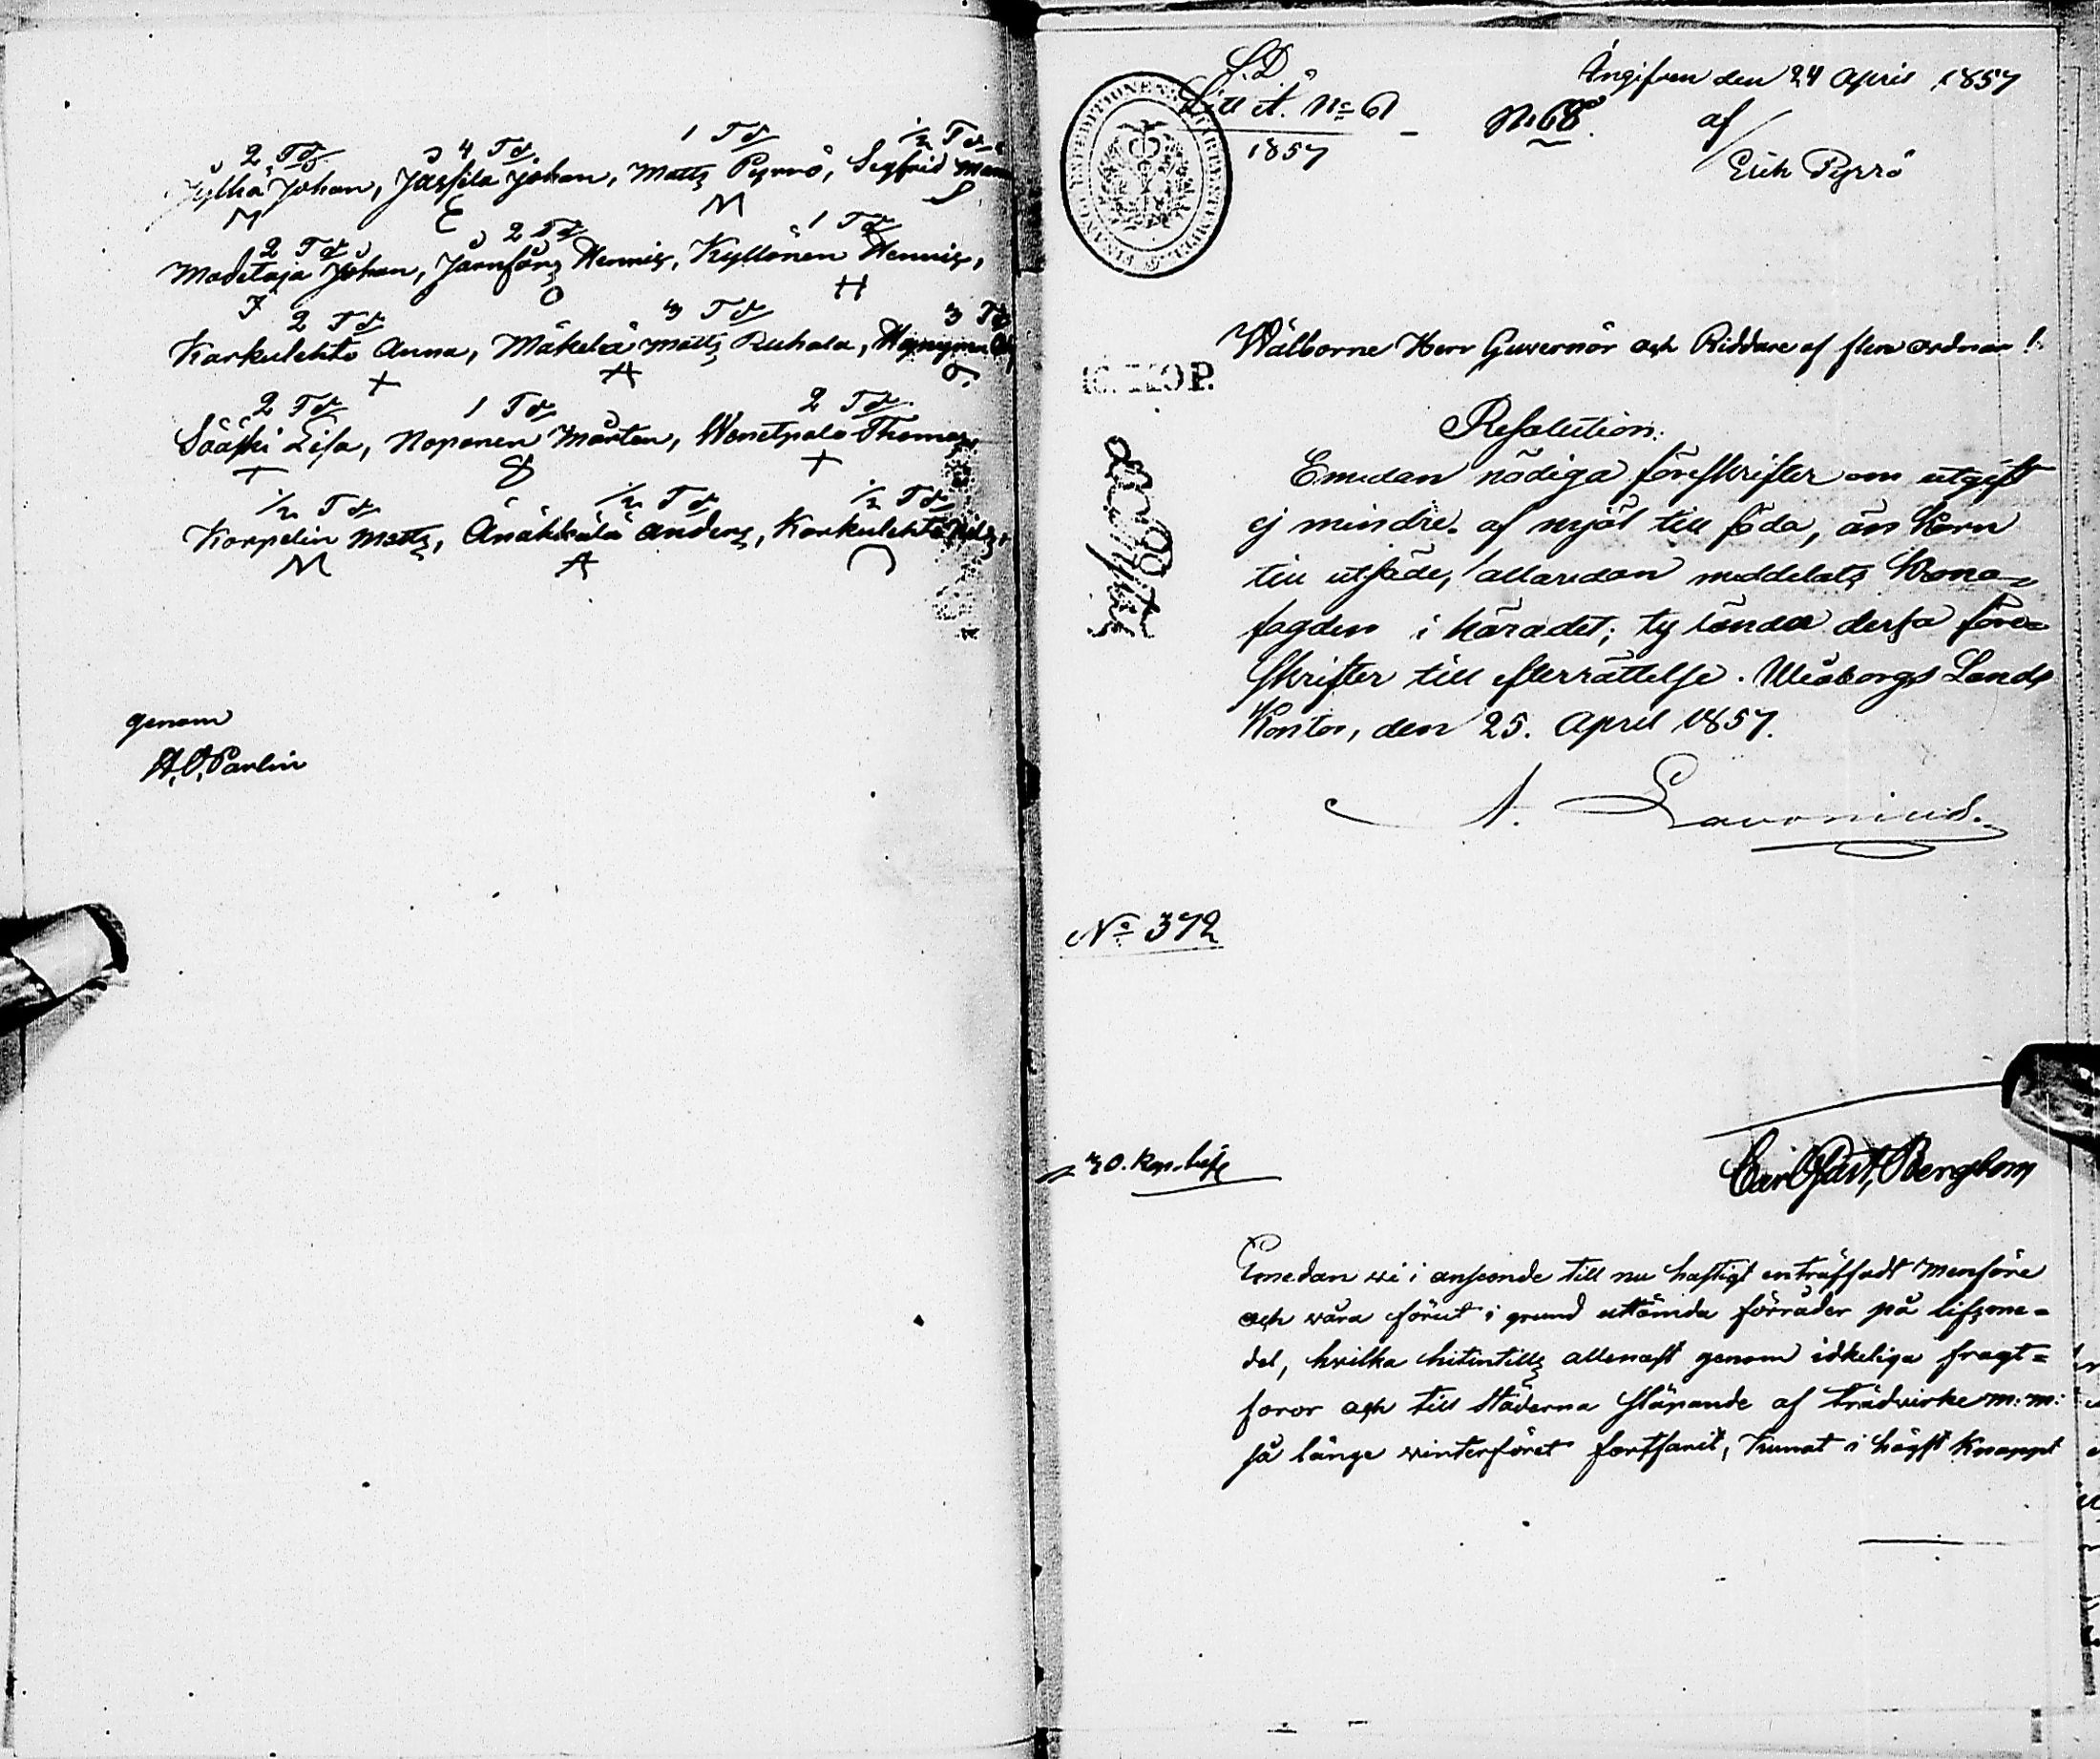 2 Td 4 Td 1 Td 1/2 Td
Jylhä Johan, Jässila Johan, Matts Pyrrö, Segfrid
M E M S
2 Td 2 Td 1 Td
Madetaja Johan, Jarnfors Hennis, Kyllönen Hennis,
J O H
2 Td 3 Td 3 Td
Karkulehto Anna, Mäkelä Matts Ruhala,
+ A O.
2 Td 1 Td 2 Td
Sääski Lisa, Noponen Mårten, Wenetpalo Thomas,
+ 8 +
1/2 Td 1/2 Td 1/2 Td
Korpelin Matts, Änäkkälä Anders, Karkulehto Nils,
M A
genom
A. O. Parlin
S.D.
Litt A. No 61
1857
No 68.
Ingifven den 24 April 1857
af
Erik Pyrrö
FINANCE EXPEDITIONENS CHARTÆ STEMPEL
Wälborne Herr Guvernör och Riddare af flere ordnar!
KOP.
Resolution:
Emedan nödiga föreskrifter om utgift
ej mindre af mjöl till föda, än Korn
till utsäde, allaredan meddelats Krono-
fogden i häradet; ty länder dessa före-
skrifter till efterrättelse. Uleåborgs Lands
Kontor, den 25. April 1857.
A. Lavonius.
No 372
30. Kop.
Carl Gust. Bergbom
Emedan vi i anseende till nu hastigt inträffadt menföre
och våra förut i grund uttömda förråder på lifsme-
del, hvilka hitintills allenast genom idkeliga fragt-
foror och till städerna släpande af trädvirke m: m:
så länge vinterföret fortfarit, kunnat i högst knappt